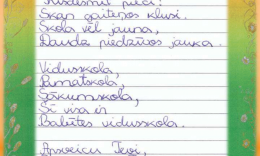 Trīsdesmit pieci!
Skan gaiteņos klusi.
Skola vēl jauna,
Daudz piedzīvos jauka.
Vidusskola,
Pamatskola,
Sākumskola,
Šī visa ir
Baložu vidusskola.
Apsveicu Tevi,